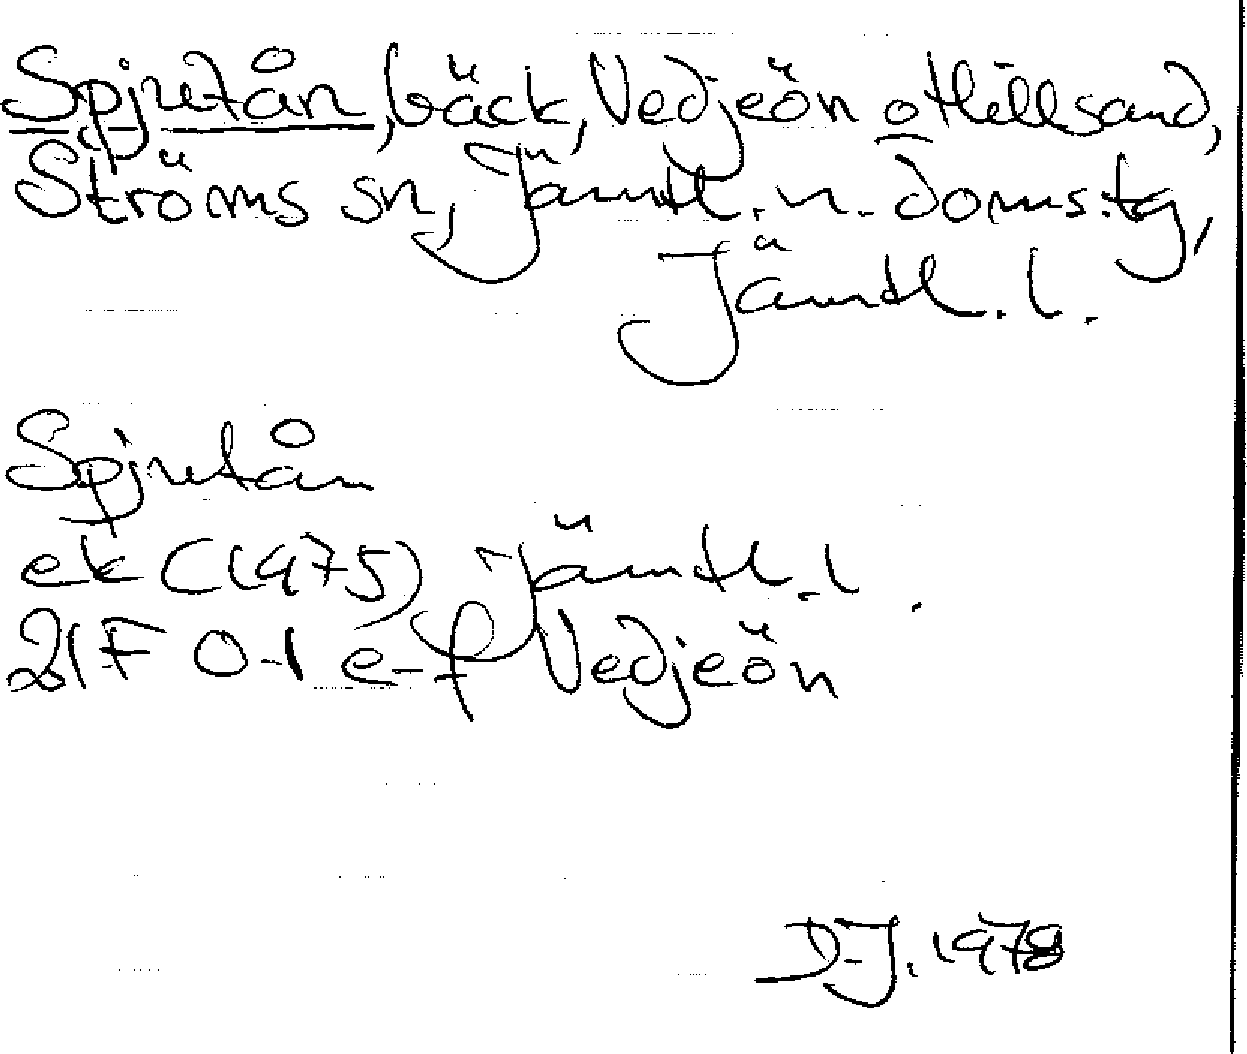 Spjutån, bäck, Vedjeön o Hillsand,
Ströms sn, Jämtl. n. doms.tg,
Jämtl. l.
Spjutån
ek (1975) Jämtl. l.
21F 0-1 e-f Vedjeön
D-J. 1978